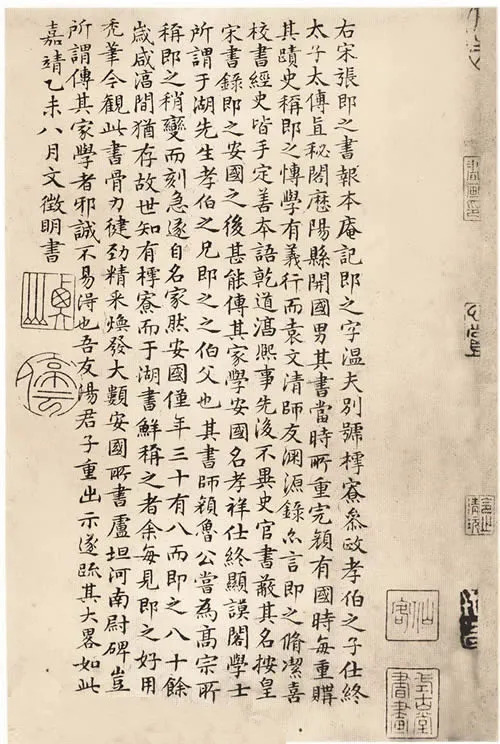 右宋張即之書報本庵記即之字溫夫別號樗寮叅政孝伯之子仕終
太子太傅直秘閣歷陽縣開國男其書當時所重完顏有國時每重購
其蹟史稱即之愽學有義行而袁文清師友淵源錄亦言即之脩潔喜
校書經史皆手定善本語乾道淳熙事先後不異史官書蔽其名按皇
宋書錄即之安國之後甚能傳其家學安國名孝祥仕終顯謨閣學士
所謂于湖先生孝伯之兄即之之伯父也其書師顏魯公嘗為高宗所
稱即之稍變而刻急遂自名家然安國僅年三十有八而即之八十餘
歲咸淳間猶存故世知有樗寮而于湖書鮮稱之者余每見即之好用
禿筆今觀此書骨力健勁精采煥發大類安國所書盧坦河南尉碑豈
所謂傳其家學者邪誠不易得也吾友湯君子重出示遂疏其大畧如此
嘉靖乙未八月文徵明書
仙客
式古堂書畫